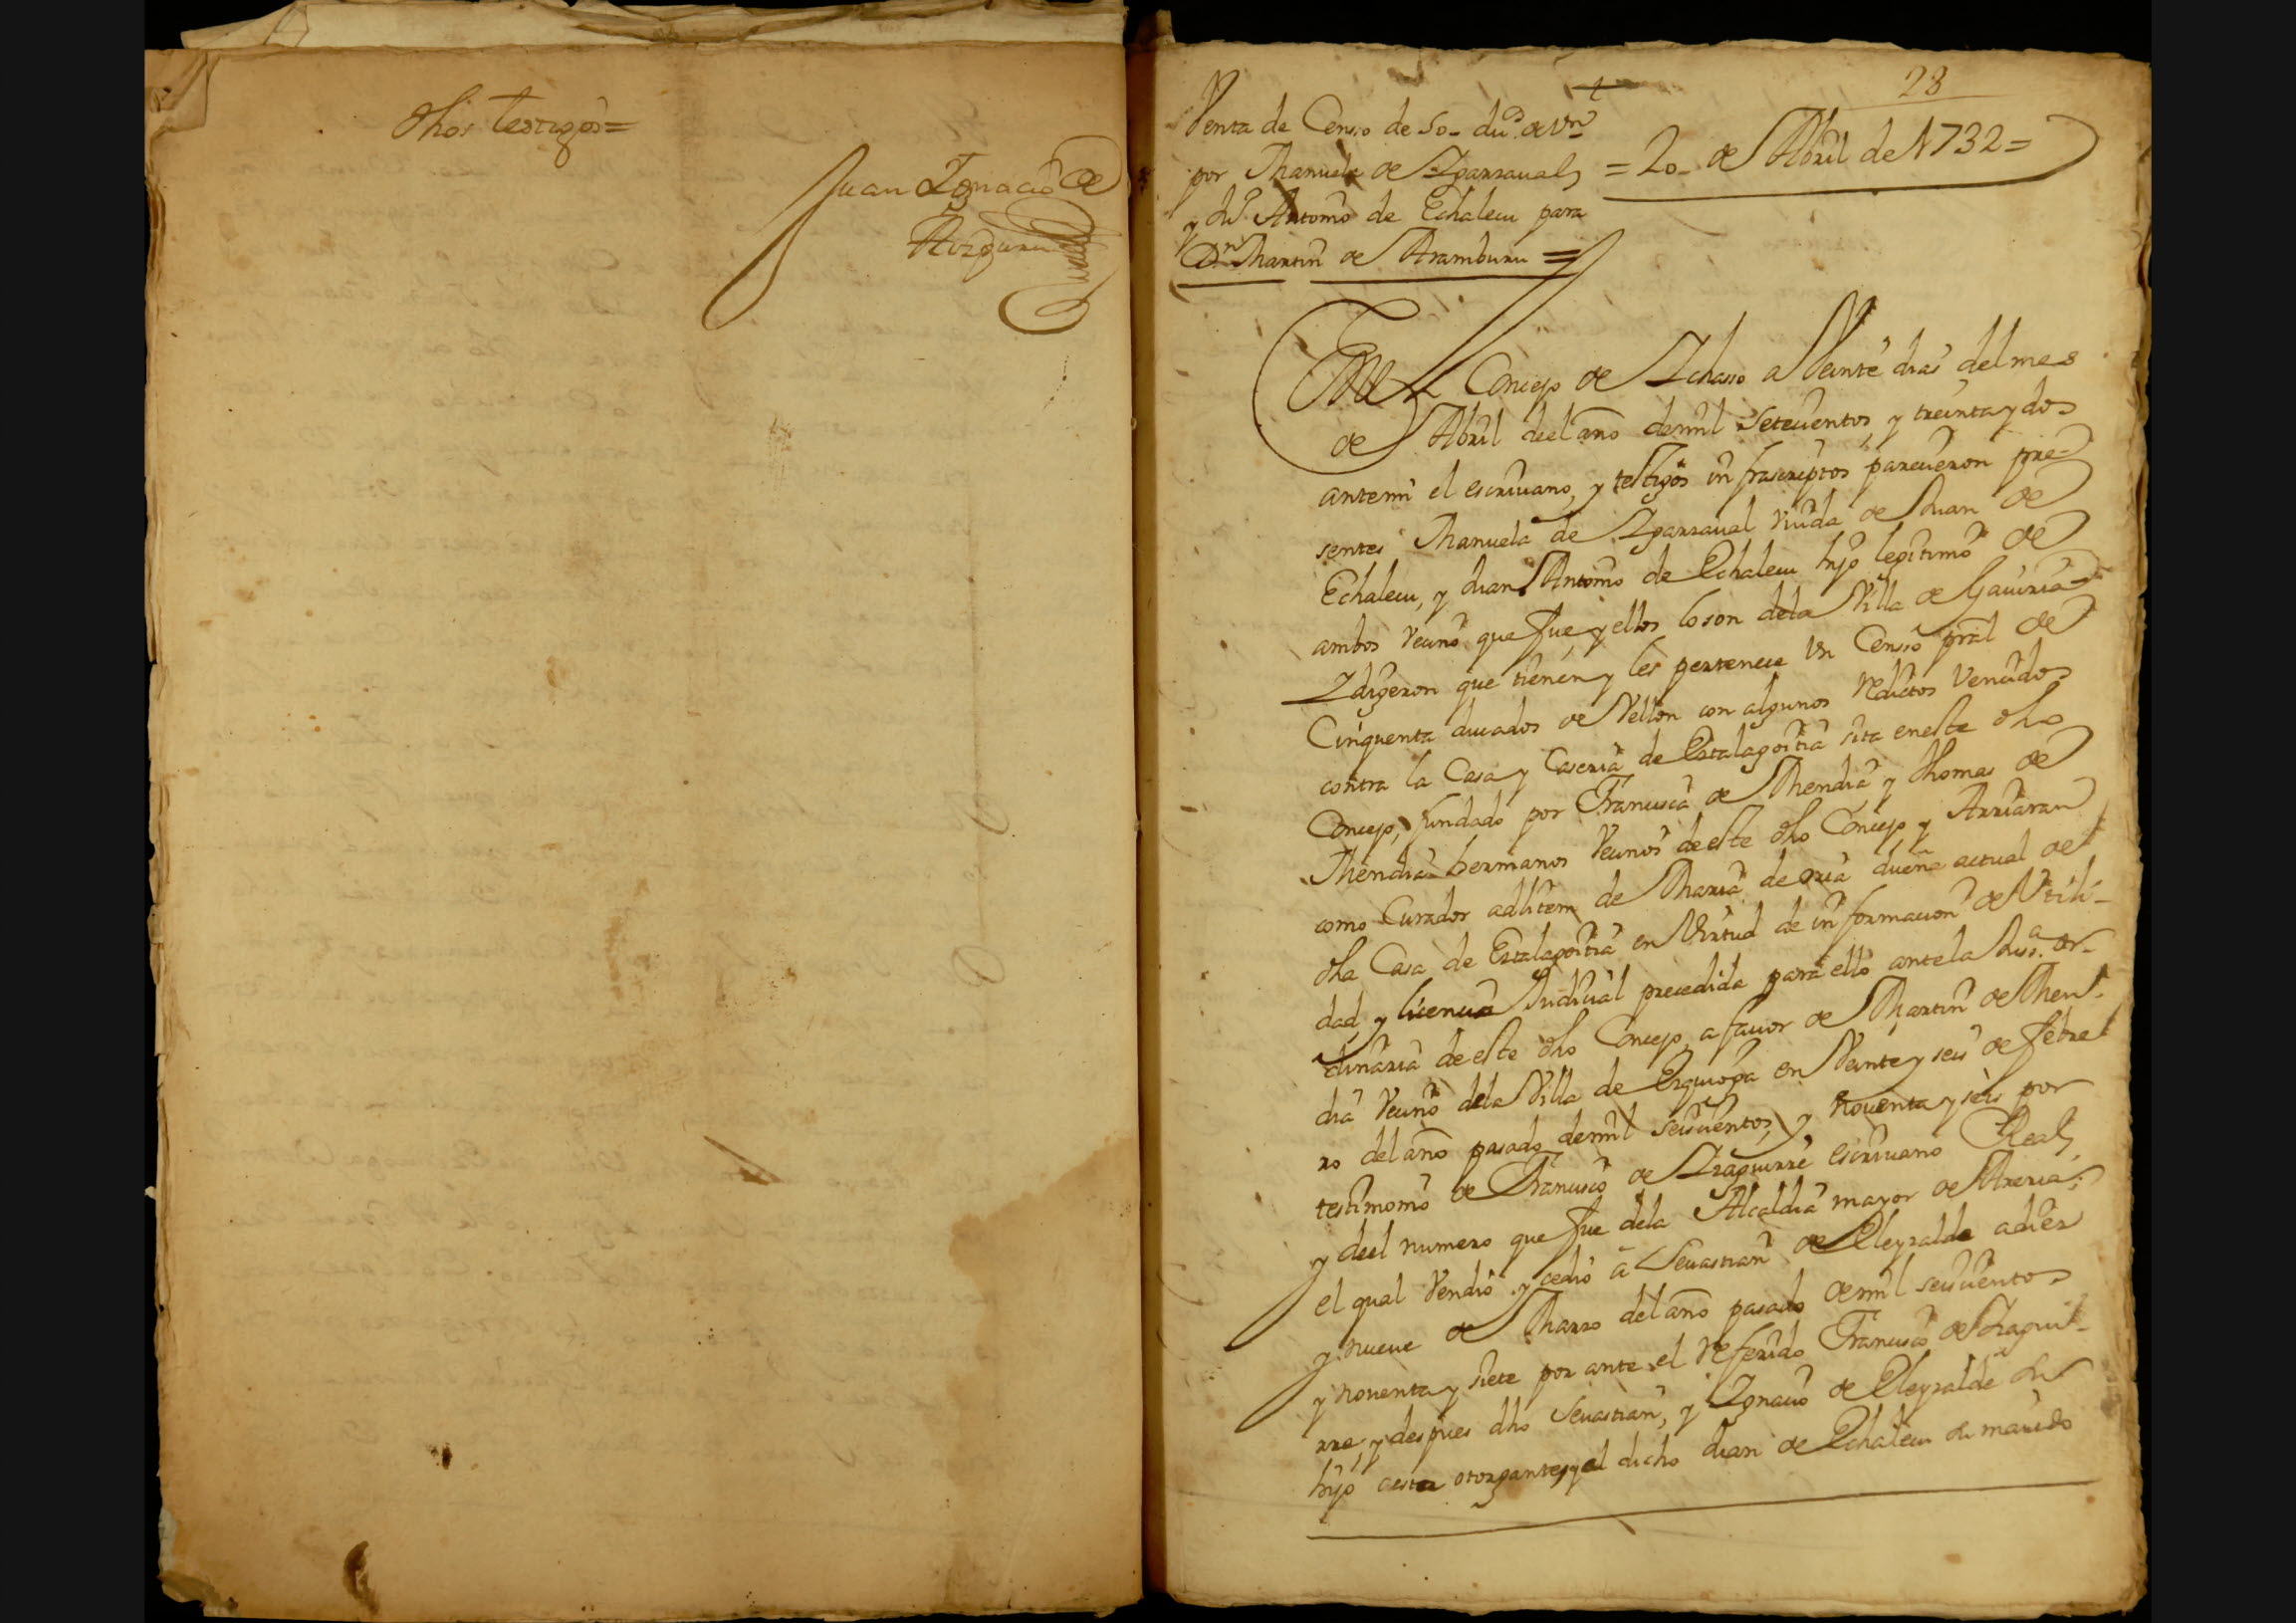 dhos testigos=
Juan Ignacio de
Aizpuru
28
Venta de Censo de 50- du.s de Vn
por Manuela de Ygarzaual,
y Jn. Antonio de Echaleeu para
Dn. Martin de Aramburu =
= 20- de Abril de 1732=
En el Concejo de Ychasso a Veinte dias del mes
de Abril deel año demil Setecientos, y treinta y dos
antemi el escriuano, y testigos infrascriptos parecieron pre-
sentes Manuela de Ygarzaual Viuda de Juan de
Echaleeu, y Juan Antonio de Echaleeu hijo legitimo de
ambos Vecino que fue, y ellos loson dela Villa de Gauiria=
Y digeron que tienen y les pertenece Un Censo pral de
Cinquenta ducados de Vellon con algunos Reditos Vencidos
contra la Casa y Caseria de Eztalagoitia sita eneste dho
Concejo, fundado por Francisca de Mendia y Thomas de
Mendia hermanos Vecinos deeste dho Concejo, y Arriaran
como Curador adlitem de Maria de oria dueña actual de
dha Casa de Eztalagoitia en Virtud de informacion de Vtili-
dad, y licencia Judicial precedida para ello antela Juss.a or-
dinaria deeste dho Concejo a fauor de Martin de Men-
dia Vecino dela Villa de Ezquioga en Veinte y seis de febre-
ro del año pasado demil seiscientos, y nouenta y seis por
testimonio de Francisco de Yzaguirre escriuano Real,
y deel numero que fue dela Alcaldia mayor de Areria;
el qual Vendio y cedio a Seuastian de Eleyzalde adiez
y nueue de Marzo del año pasado demil seiscientos
y nouenta y siete por ante el Referido Francisco de Yzagui-
rre, y despues dho Seuastian, y Ygnacio de Eleyzalde su
hijo aesta otorgante, y al dicho Juan de Echaleeu su marido